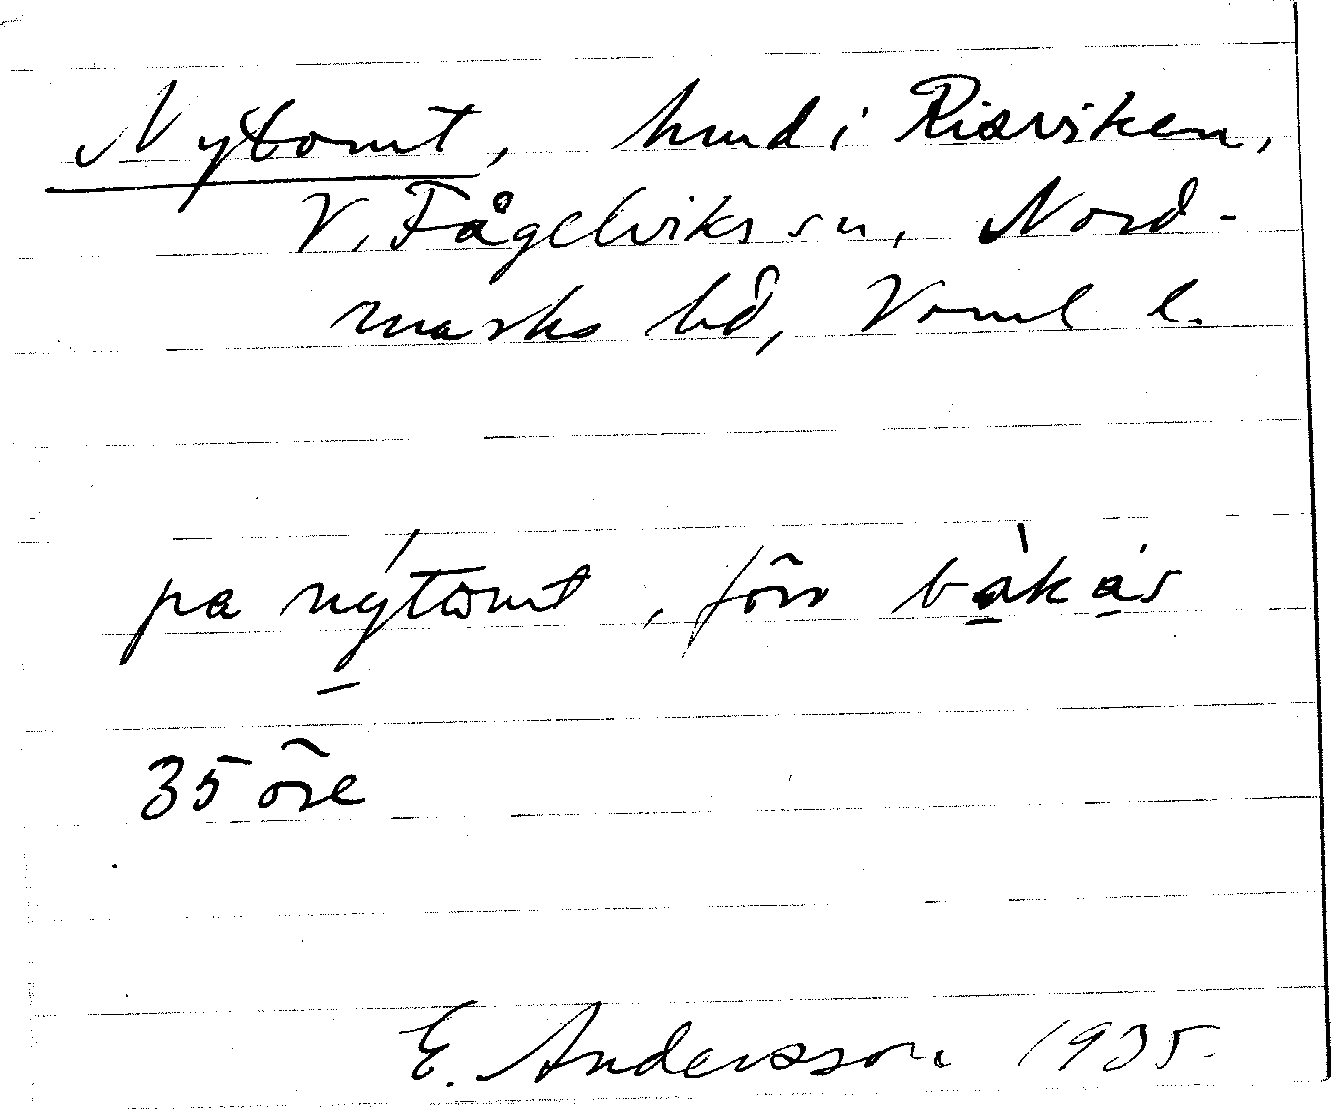 Nytomt, hmd i Risviken,
V. Fågelviks sn, Nord-
marks hd, Vrml l.
pa nýtomt, förr bàkás
35 öre
E. Andersson 1935.